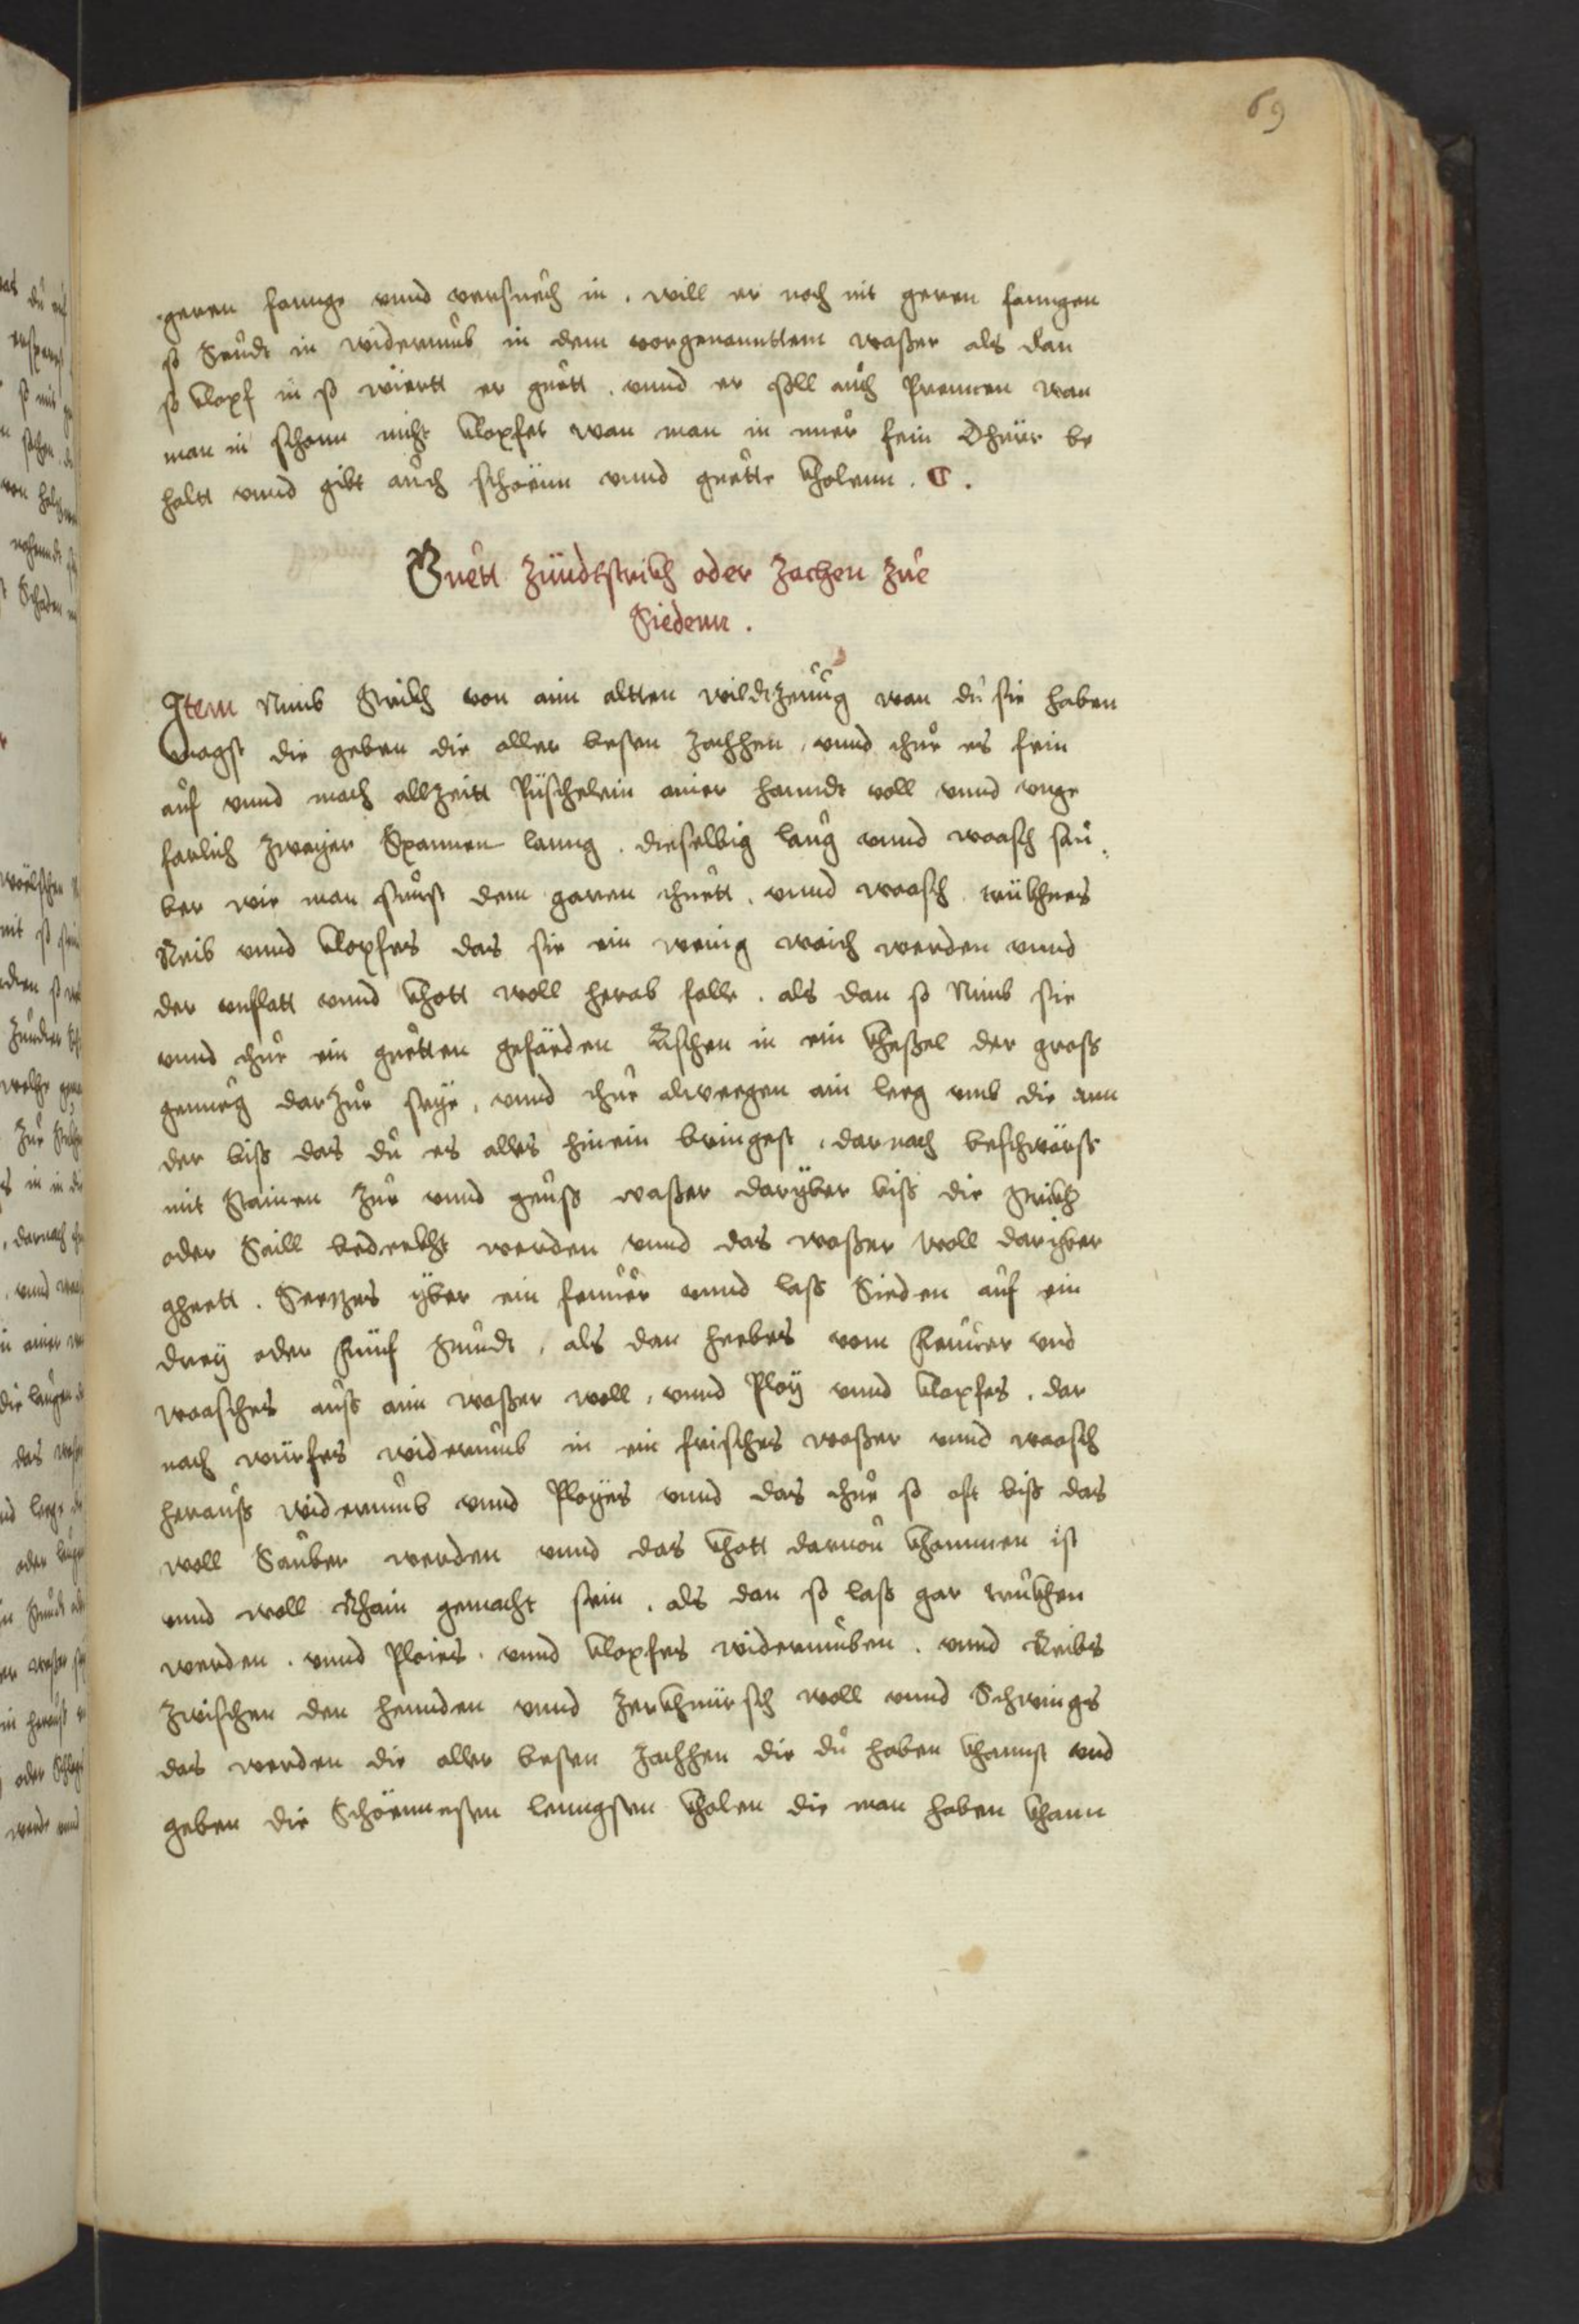 69
geren fannge vnnd versuech in . will er noch nit geren fanngen
so Seudt in widerumb in dem vorgenannttem waßer als dan
so klopf in so wiertt er guett . vnnd er soll auch Prennen wan
man in schonn nicht klopfet wan man in nuer fein Dhuͤr be
haltt vnnd gibt auch schoenn vnnd guette kholenn . C .
Guett Zündtstrickh oder Zachen Zue
Siedenn .
Item Nimb Strickh von aim altten wildtzeuug wan du sie haben
magst die geben die aller besten Zachhen , vnnd thue es fein
auf vnnd mach allzeitt Püschelein ainer hanndt voll vnnd vnge
farlich zwayer Spannen lanng . dieselbig laug vnnd waasch sau
ber wie man sunst dem garen thuett . vnnd waasch trückhnes
Reib vnnd klopfes das sie ein wenig waich werden vnnd
der vnflatt vnnd khott woll herab falle . als dan so Nimb sie
vnnd thue ein guetten gefäeden Aschen in ein kheßel der gross
genueg darzue seye , vnnd thue alweegen ain leeg vmb die ann
der biss das du es alles hinein bringest . darnach beschwärss
mit Stainen Zue vnnd geuss waßer daryber biss die strickh
oder Saill bedeckht werden vnnd das waßer woll dariber
gheett . Seezes yber ein feuuer vnnd lass Sieden auf ein
drey oder Fünf stundt , als dan heebes vom Feuuer vnd
waasches auss aim waßer woll , vnnd Ploy vnnd klopfes . dar
nach würfes widerumb in ein frisches waßer vnnd waasch
herauss widerumb vnnd Ployes vnnd das thue so oft biss das
woll Sauber werden vnnd das khott daruon khommen ist
vnnd woll Rhain gemacht sein . als dan so lass gar truckhen
werden . vnnd Ploies . vnnd klopfes widerumben . vnnd Reibs
zwischen den hennden vnnd zerkhnürsch woll vnnd Schwings
das werden die aller besten Zachhen die du haben khannst vnd
geben die Schöennesten lenngsten kholen die man haben khann